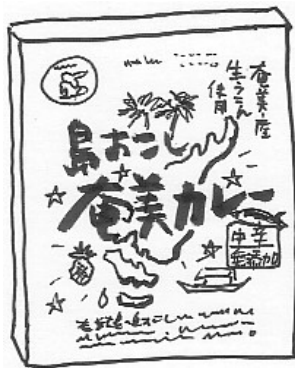 奄美産
生うこん
使用
島おこし
奄美カレー
中辛
無添加